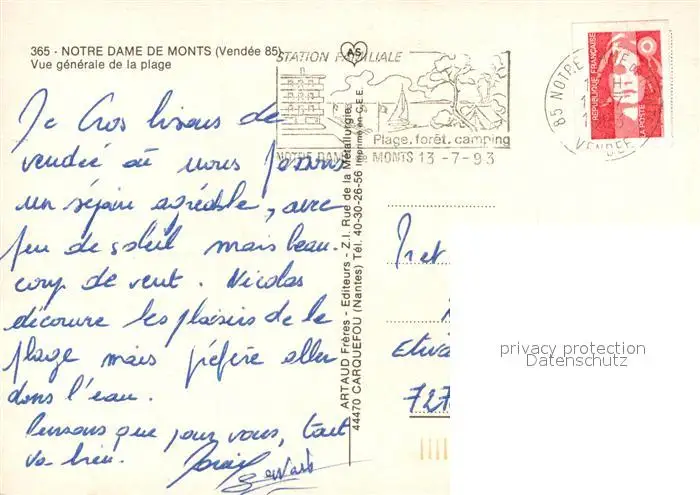 365 - NOTRE DAME DE MONTS (Vendée 85)
Vue générale de la plage
STATION FAMILIALE
AS
Plage, forêt, camping
NOTRE DAME DE MONTS 13-7-93
85 NOTRE DAME DE
VENDEE
REPUBLIQUE FRANÇAISE
LA POSTE
Gros bisous de
vendée où nous faisons
un séjour agréable, avec
peu de soleil mais beau-
coup de vent. Nicolas
découvre les plaisirs de la
plage mais préfère aller
dans l'eau.
Pensons que pour vous, tout
va bien.
ARTAUD Frères - Editeurs - Z.I. Rue de la Métallurgie
44470 CARQUEFOU (Nantes) Tél. 40-30-26-56 Imprimé en C.E.E.
Mr et
727
privacy protection
Datenschutz